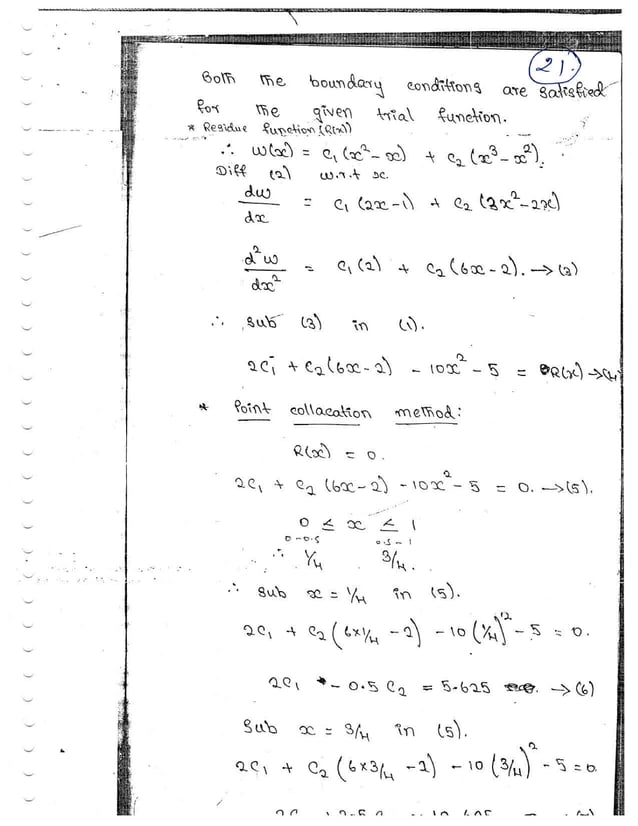 21.
Both the boundary conditions are satisfied
for the given trial function.
* Residue function (R(x))
∴ w(x) = C₁(x² - x) + C₂(x³ - x²).
Diff (2) w.r.t x.
dw/dx = C₁(2x-1) + C₂(3x²-2x)
d²w/dx² = C₁(2) + C₂(6x-2). → (3)
∴ sub (3) in (1).
2C₁ + C₂(6x-2) - 10x² - 5 = R(x) → (4)
* Point collacation method:
R(x) = 0.
2C₁ + C₂(6x-2) - 10x² - 5 = 0. → (5).
0 ≤ x ≤ 1
0-0.5 0.5-1
∴ 1/4 3/4.
∴ sub x = 1/4 in (5).
2C₁ + C₂(6×1/4 - 2) - 10(1/4)² - 5 = 0.
2C₁ - 0.5C₂ = 5.625 → (6)
Sub x = 3/4 in (5).
2C₁ + C₂(6×3/4 - 2) - 10(3/4)² - 5 = 0